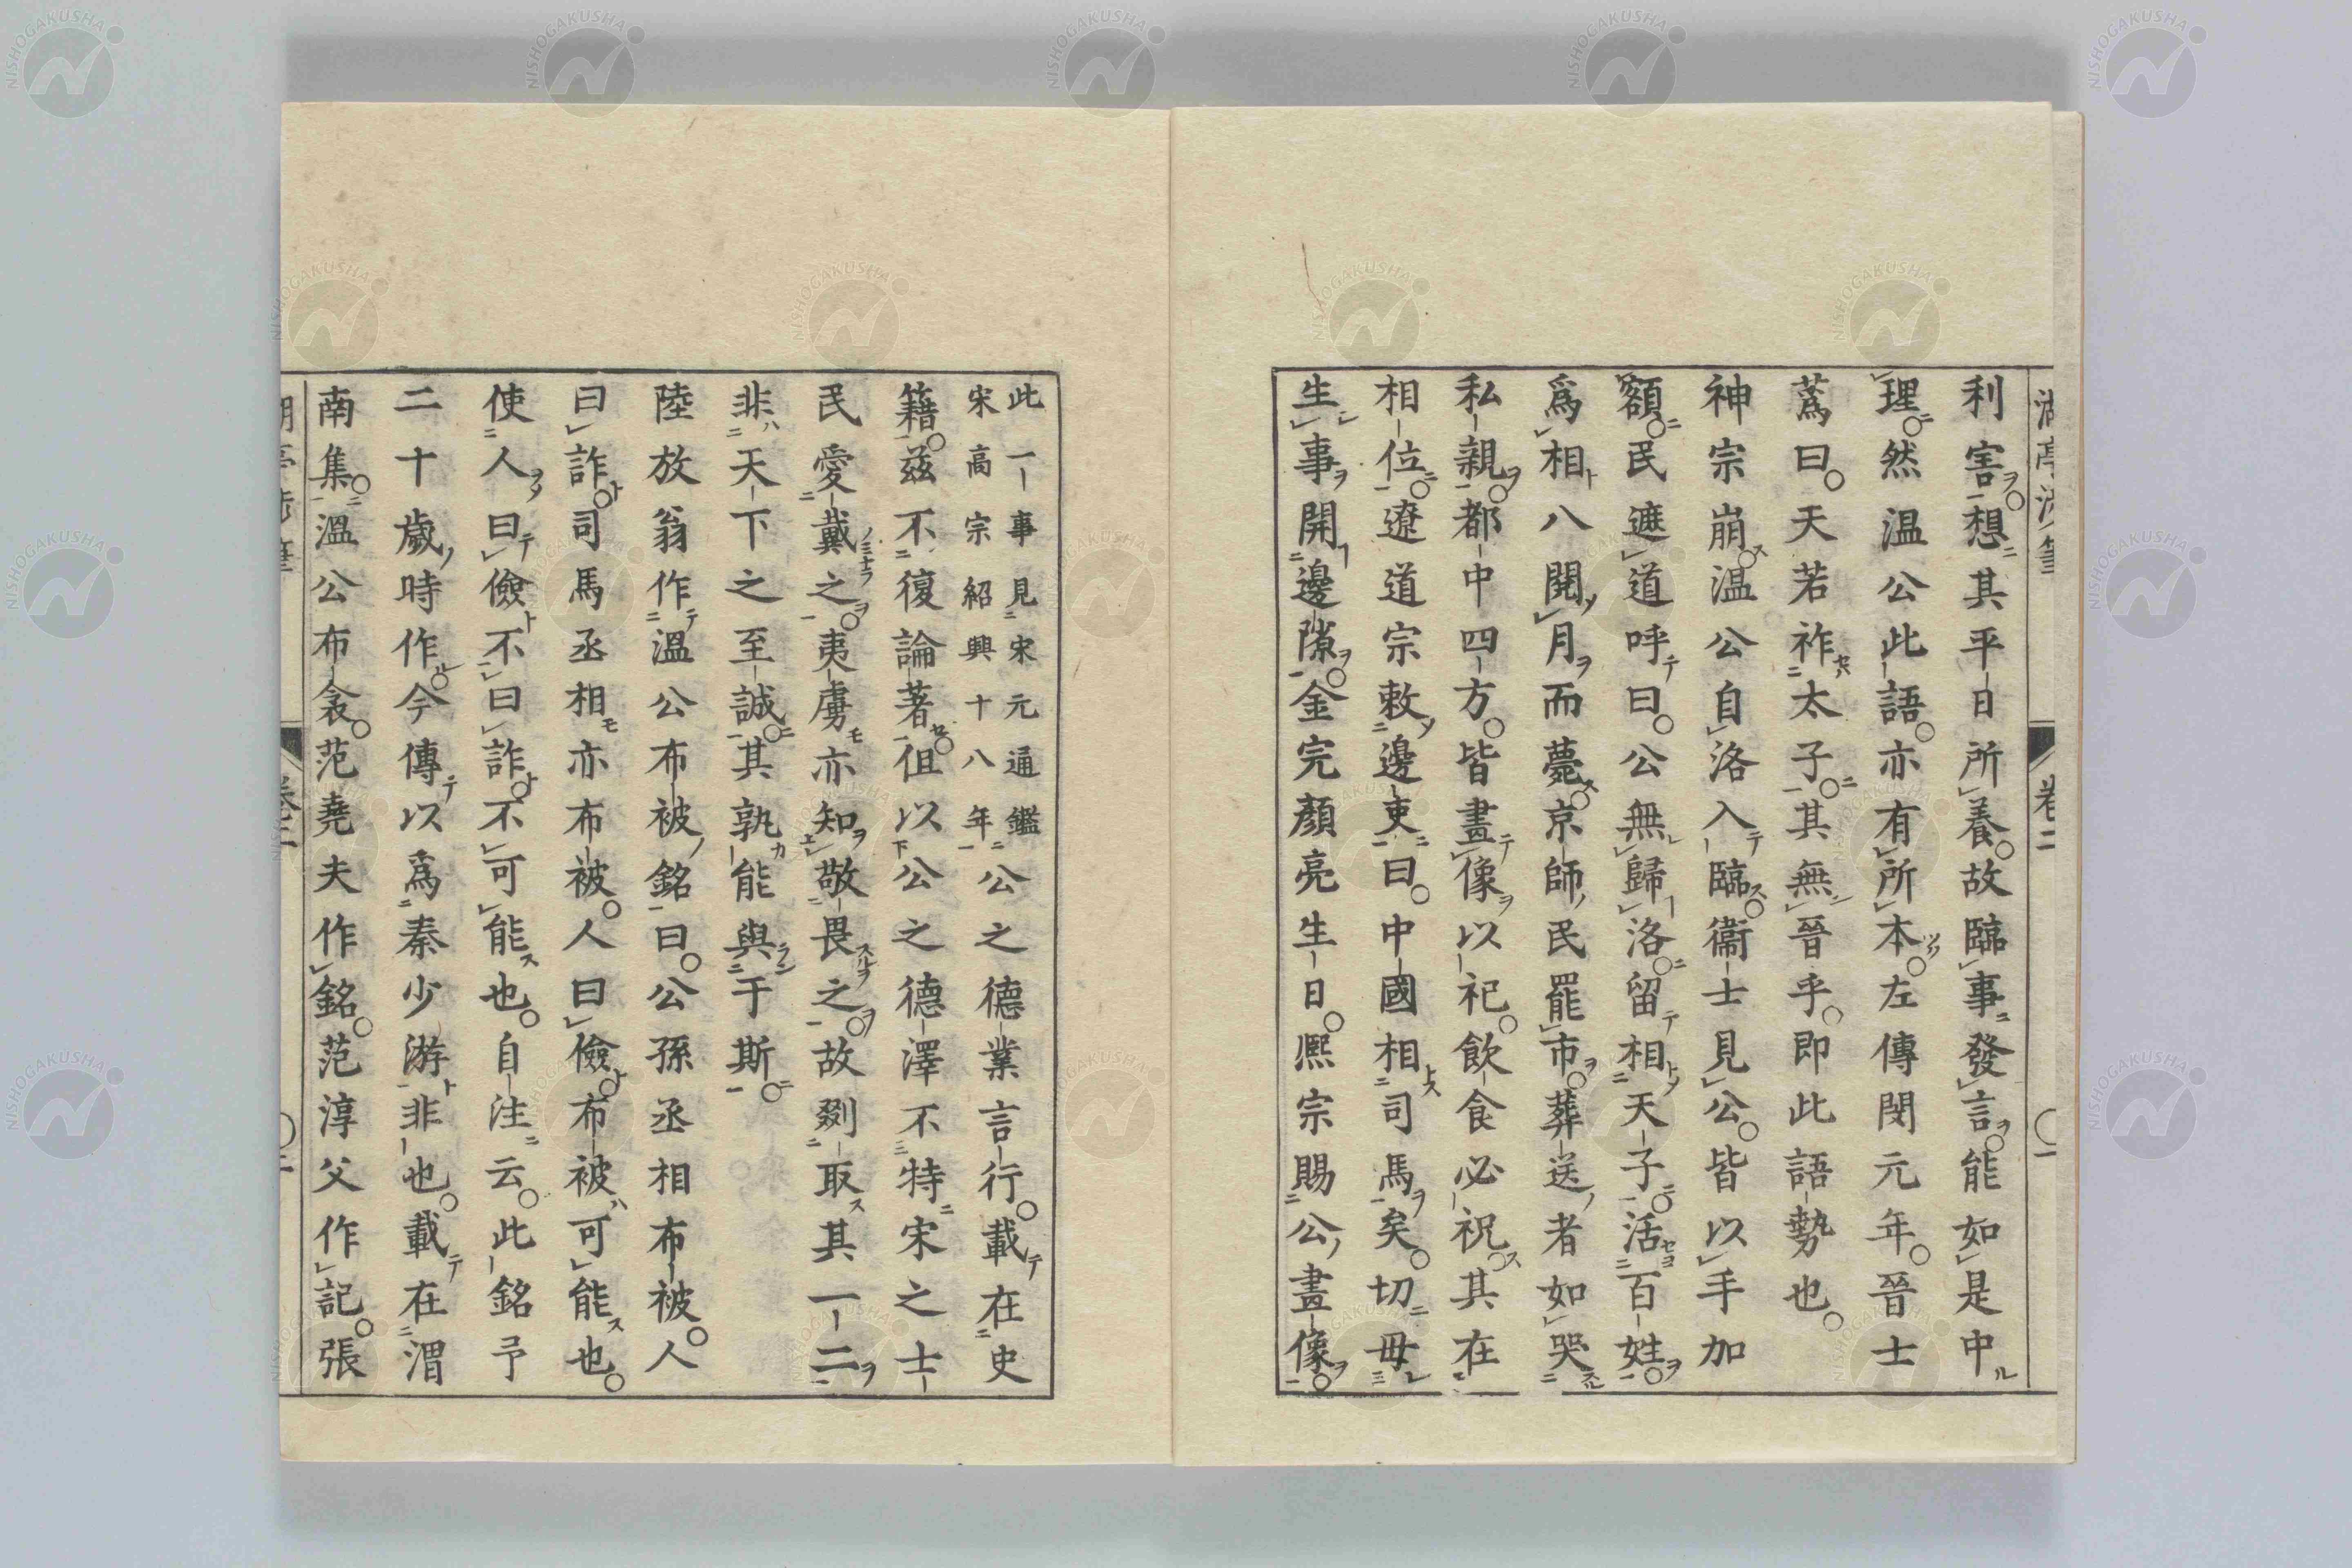 利害想其平日所養故臨事發言能如是中
理然温公此語亦有所本左傳閔元年晉士
蔿曰天若祚太子其無晉乎即此語勢也
神宗崩温公自洛入臨衞士見公皆以手加
額民遮道呼曰公無歸洛留相天子活百姓
爲相八閱月而薨京師民罷市葬送者如哭
私親都中四方皆畫像以祀飲食必祝其在
相位遼道宗敕邊吏曰中國相司馬矣切毋
生事開邊隙金完顏亮生日熙宗賜公畫像
此一事見宋元通鑑
宋高宗紹興十八年
公之德業言行載在史
籍茲不復論著徂以公之德澤不特宋之士
民愛戴之夷虜亦知敬畏之故剟取其一二
非天下之至誠其孰能與于斯
陸放翁作溫公布被銘曰公孫丞相布被人
曰詐司馬丞相亦布被人曰儉布被可能也
使人曰儉不曰詐不可能也自注云此銘予
二十歲時作今傳以爲秦少游非也載在渭
南集溫公布衾范堯夫作銘范淳父作記張
卷二
NISHOGAKUSHA